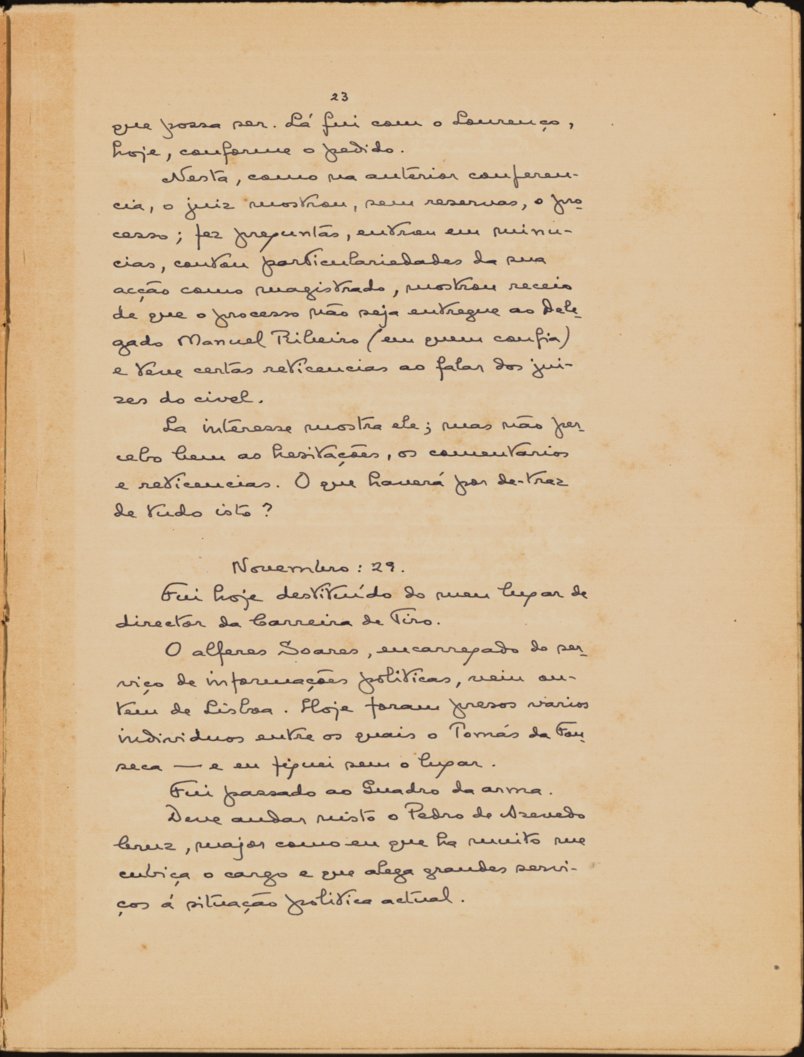 23
que possa ser. Lá fui com o Lourenço,
hoje, conforme o pedido.
Nesta, como na anterior conferen-
cia, o juiz mostrou, sem reservas, o pro-
cesso; fez preguntas, entrou em minu-
cias, contou particulariedades da sua
acção como magistrado, mostrou receio
de que o processo não seja entregue ao Dele-
gado Manuel Ribeiro (em quem confia)
e teve certas reticencias ao falar dos jui-
zes do civel.
La interesse mostra ele; mas não per-
cebo bem as hesitações, os comentarios
e reticencias. O que haverá por de-traz
de tudo isto?
Novembro: 29.
Fui hoje destituído do meu lugar de
director da Carreira de Tiro.
O alferes Soares, encarregado do ser-
viço de informações politicas, veiu on-
tem de Lisboa. Hoje foram presos varios
individuos entre os quais o Tomás da Fon-
seca — e eu fiquei sem o lugar.
Fui passado ao Quadro da arma.
Deve andar nisto o Pedro de Azevedo
Cruz, major como eu que ha muito me
cubiça o cargo e que alega grandes servi-
ços á situação politica actual.